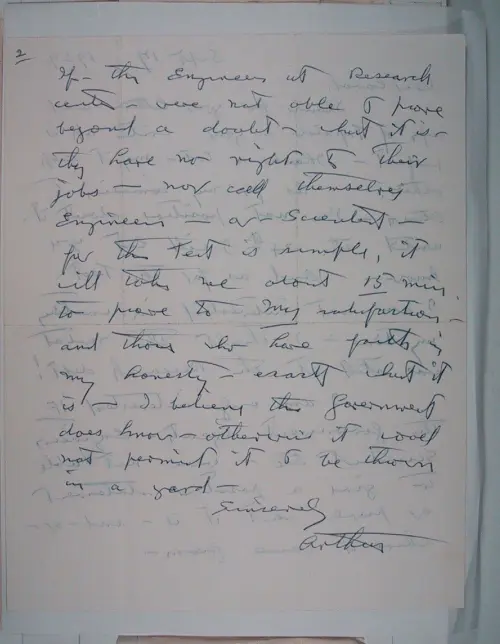 2
If - the Engineers at Research
center - were not able to prove
beyond a doubt - what it is -
they have no right to - their
jobs - nor call themselves
Engineers - or - Scientist -
for the Test is simple, it
will take me about 15 min.
to prove to my satisfaction -
and those who have faith in
my honesty - exactly what it
is - I believe the Government
does know - otherwise it would
not permit it to be thrown
in a yard -
Sincerely
Arthur